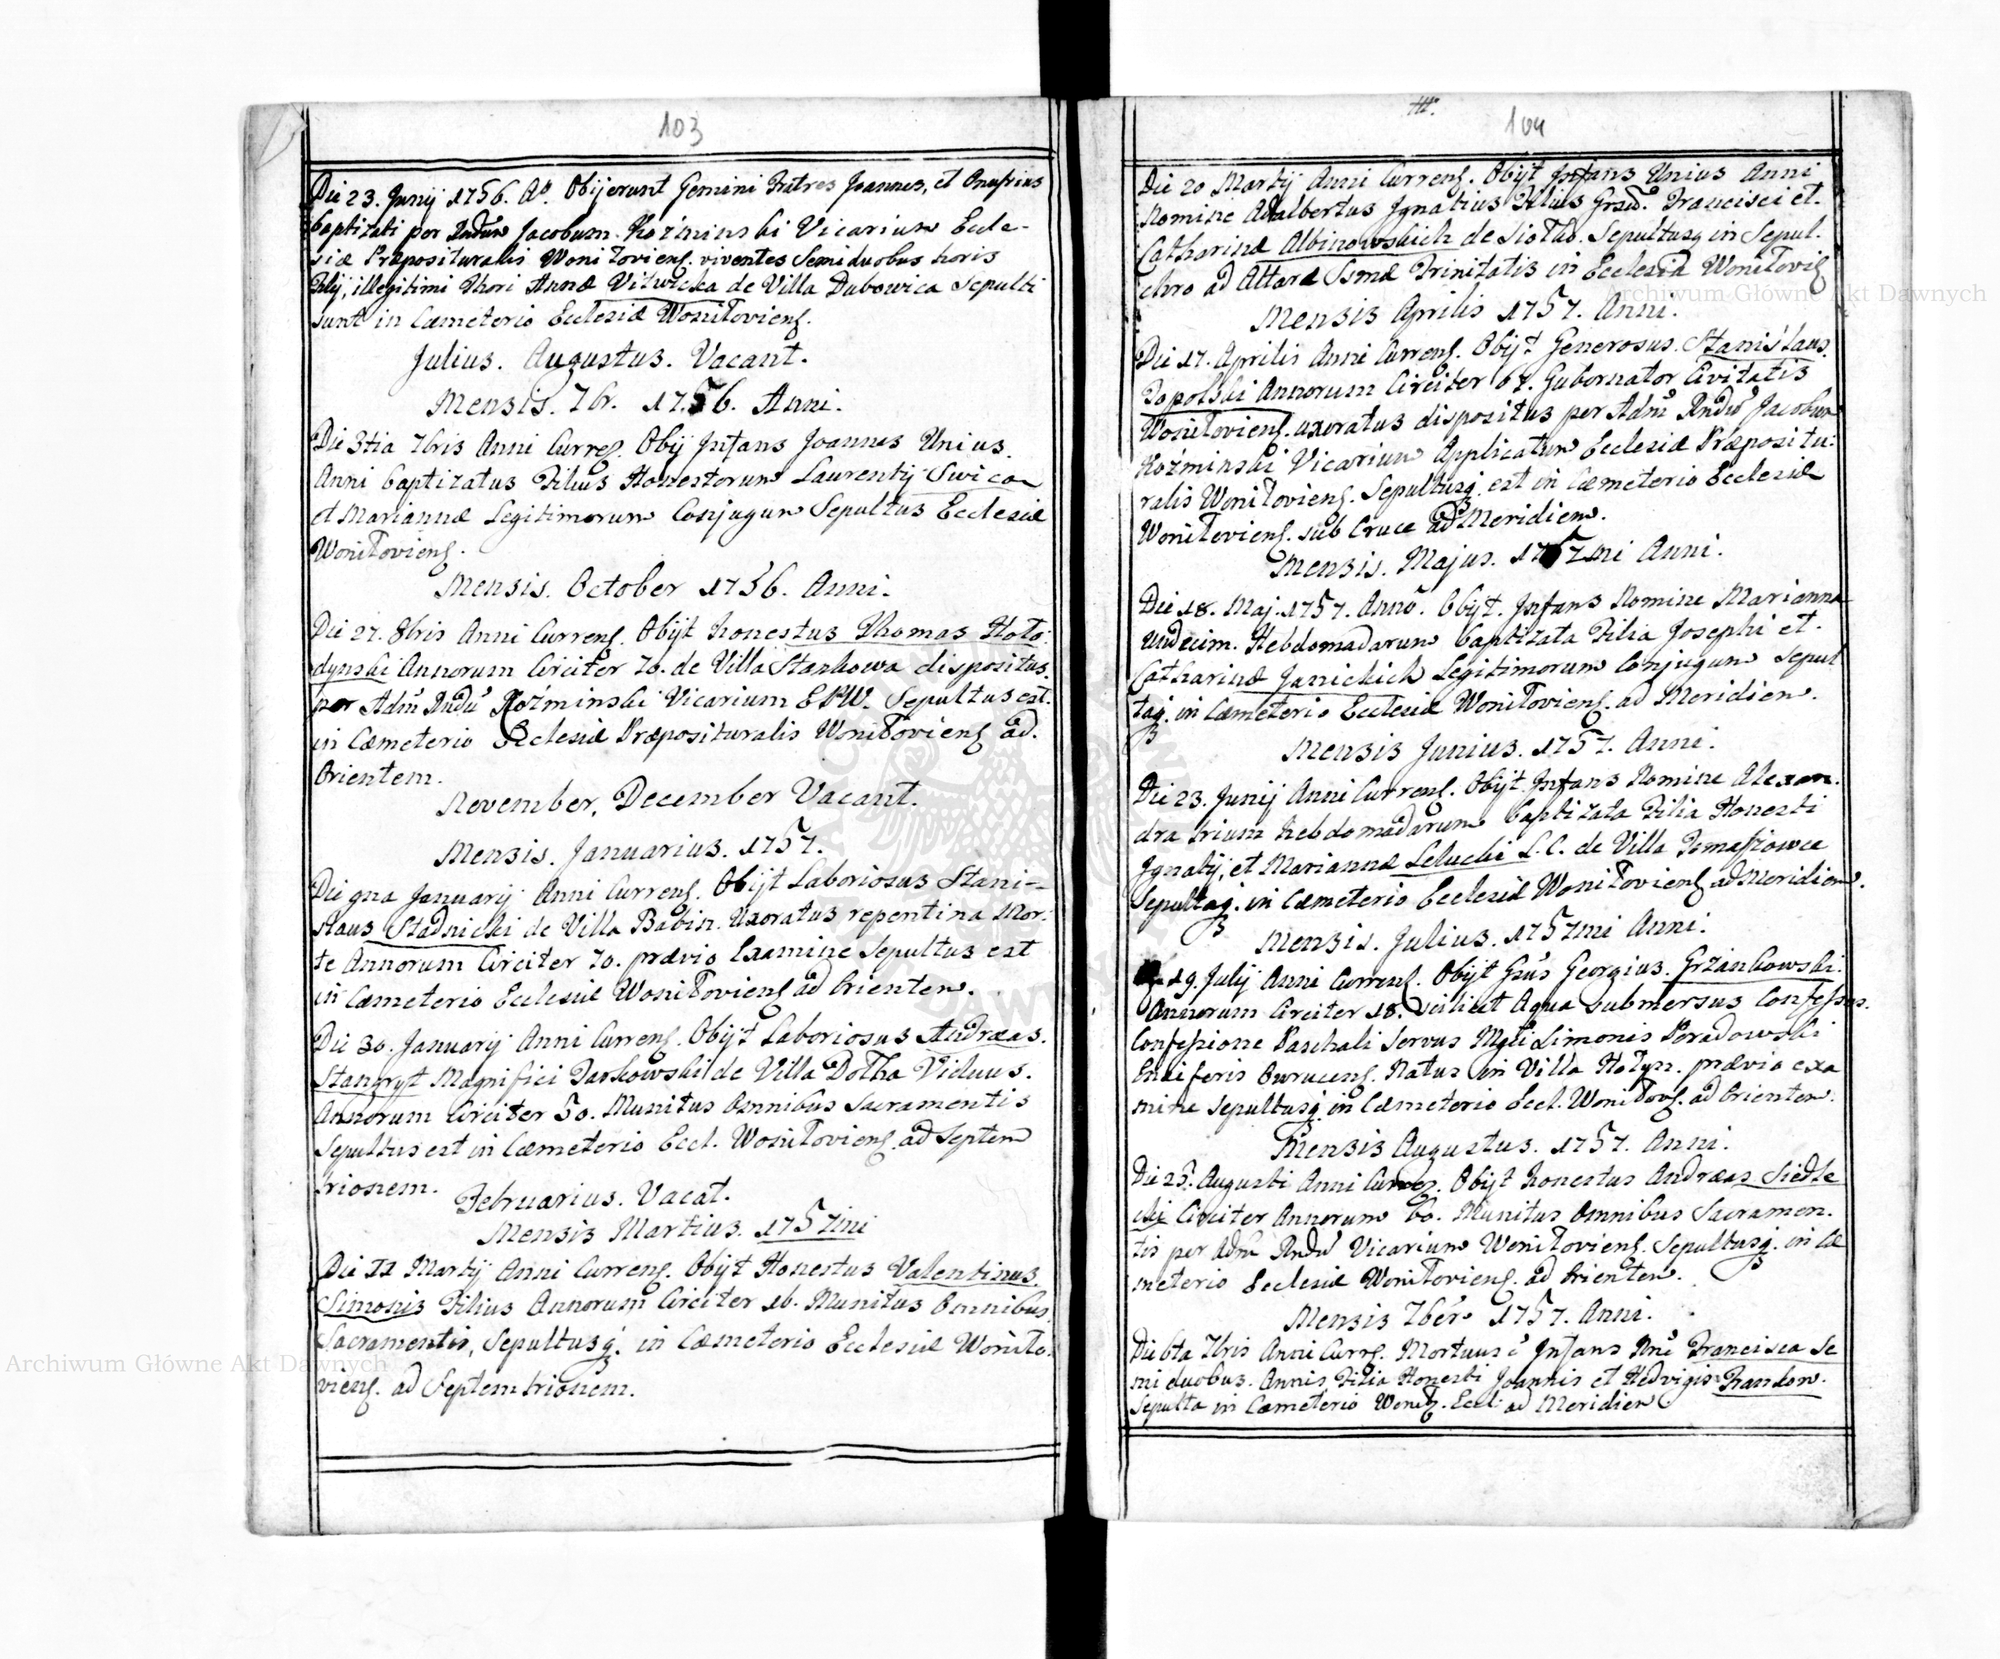 103
Die 23. Junij 1756. Aº. Obijerunt Gemini Fratres Joannes, et Onufrius
baptizati per Rndum Jacobum Koźminski Vicarium Eccle-
siæ Præposituralis Woniłoviens. viventes Semiduobus horis
Filij, illegitimi Thori Annæ Vitwicka de Villa Dubowica Sepulti
sunt in Cæmeterio Ecclesiæ Woniłoviens.
Julius. Augustus. Vacant.
Mensis. 7br. 1756. Anni.
Die 3tia 7bris Anni Curres. Obij Infans Joannes Unius.
Anni baptizatus Filius Honestorum Laurentij Swica
et Mariannæ Legitimorum Conjugum Sepultus Ecclesiæ
Woniłoviens.
Mensis. October 1756. Anni.
Die 27. 8bris Anni Currens. Obijt honestus Thomas Hoło:
dynski Annorum Circiter 70. de Villa Stankowa dispositus.
per Adm Rndu Koźminski Vicarium EPW. Sepultus est.
in Cæmeterio Ecclesiæ Præposituralis Woniłoviens ad.
Orientem.
November, December Vacant.
Mensis. Januarius. 1757.
Die 9na Januarij Anni Currens. Obijt Laboriosus Stani-
slaus Stadnicki de Villa Babin. Uxoratus repentina Mor:
te Annorum Circiter 70. prævio Examine Sepultus est
in Cæmeterio Ecclesiæ Woniłoviens ad Orientem.
Die 30. Januarij Anni Currens. Obijt Laboriosus Andræas.
Stangryt Magnifici Darkowski de Villa Dołha Viduus.
Annorum Circiter 50. Munitus Omnibus Sacramentis
Sepultus est in Cæmeterio Eccl. Woniłoviens. ad Septem
trionem.
Februarius. Vacat.
Mensis Martius. 1757mi
Die 12 Martij Anni Currens. Obijt Honestus Valentinus.
Simonis Filius Annorum Circiter 16. Munitus Omnibus
Sacramentis, Sepultusq. in Cæmeterio Ecclesiæ Woniło:
viens. ad Septemtrionem.
104
Die 20 Martij Anni Currens. Obijt Infans Unius Anni
Nomine Adalbertus Ignatius Filius Francisci et.
Catharinæ Albinowskich de Siołko. Sepultusq in Sepul.
chro ad Altare Ssmæ Trinitatis in Ecclesia Woniłovis
Mensis Aprilis 1757. Anni.
Die 17. Aprilis Anni Currens. Obijt Generosus. Stanislaus.
Topolski Annorum Circiter 67. Gubernator Civitatis
Woniłoviens. uxoratus dispositus per Adm Rndu Jacobum
Koźminski Vicarium Applicatum Ecclesiæ Præpositu:
ralis Woniłoviens. Sepultusq. est in Cæmeterio Ecclesiæ
Woniłoviens. sub Cruce ad Meridiem.
Mensis. Majus. 1757mi Anni.
Die 18. Maj. 1757. Anno. Obijt. Infans Nomine Marianna
undecim. Hebdomadarum baptizata Filia Josephi et.
Catharinæ Janickich Legitimorum Conjugum Sepul
taq. in Cæmeterio Ecclesiæ Woniłoviens. ad Meridiem.
Mensis Junius. 1757. Anni.
Die 23. Junij Anni Currens. Obijt. Infans Nomine Alexan.
dra trium hebdomadarum baptizata Filia Honesti
Ignatij, et Mariannæ Seluchi L.C. de Villa Tomaszowce
Sepultaq. in Cæmeterio Ecclesiæ Woniłoviens ad Meridiem.
Mensis. Julius. 1757mi Anni.
19. Julij Anni Currens. Obijt Georgius. Grzankowski.
Annorum Circiter 18. Aqua submersus Confessus.
Confessione Paschali Servus Simonis Poradowski
Ensiferis Natus in Villa Hołyn. prævio exa
mine Sepultusq. in Cæmeterio Eccl. Woniłovs. ad Orientem.
Mensis Augustus. 1757. Anni.
Die 25. Augusti Anni Obijt honestus Andræas Siedle
cki Circiter Annorum 60. Munitus Omnibus Sacramen.
tis per Adm Rndu Vicarium Woniłoviens. Sepultusq. in Cæ
meterio Ecclesiæ Woniłoviens. ad Orientem.
Mensis 7ber 1757. Anni.
Die 6ta 7bris Anni Currs. Mortuus Infans Francisca Se
mi duobus. Annis Filia Honesti Joannis et Hedvigis Frankow.
Sepulta in Cæmeterio Eccl: ad Meridiem
Archiwum Główne Akt Dawnych
Archiwum Główne Akt Dawnych